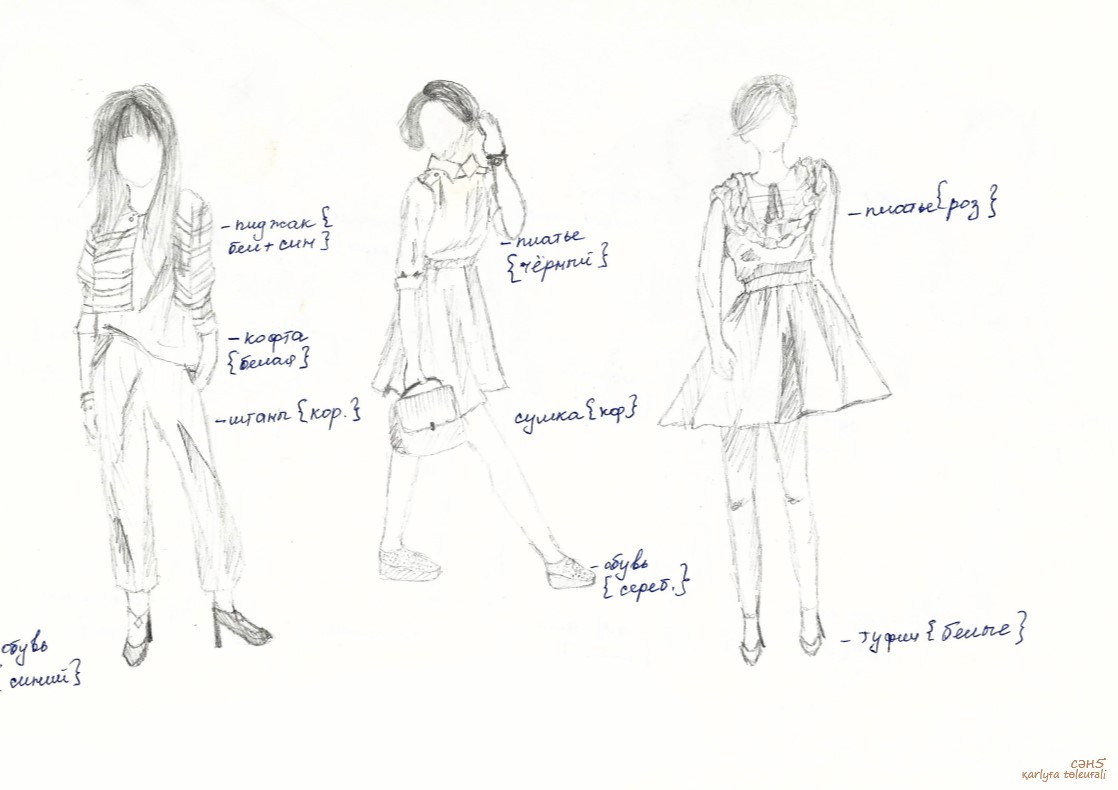 - пиджак {
бел + син }
- кофта
{ белая }
- штаны { кор. }
обувь
{ синий }
- платье
{ чёрный }
сумка { кф }
- обувь
{ сереб. }
- платье { роз }
- туфли { белые }
сән5
қarlyғa tөleuғali